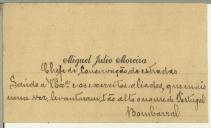 Miguel Julio Moreira
Chefe de Conservação de estradas
Saúda a V. Ex.ª e os exercitos aliados, que mais
uma vez, levantaram tão alto o nome de Portugal
Bombarral